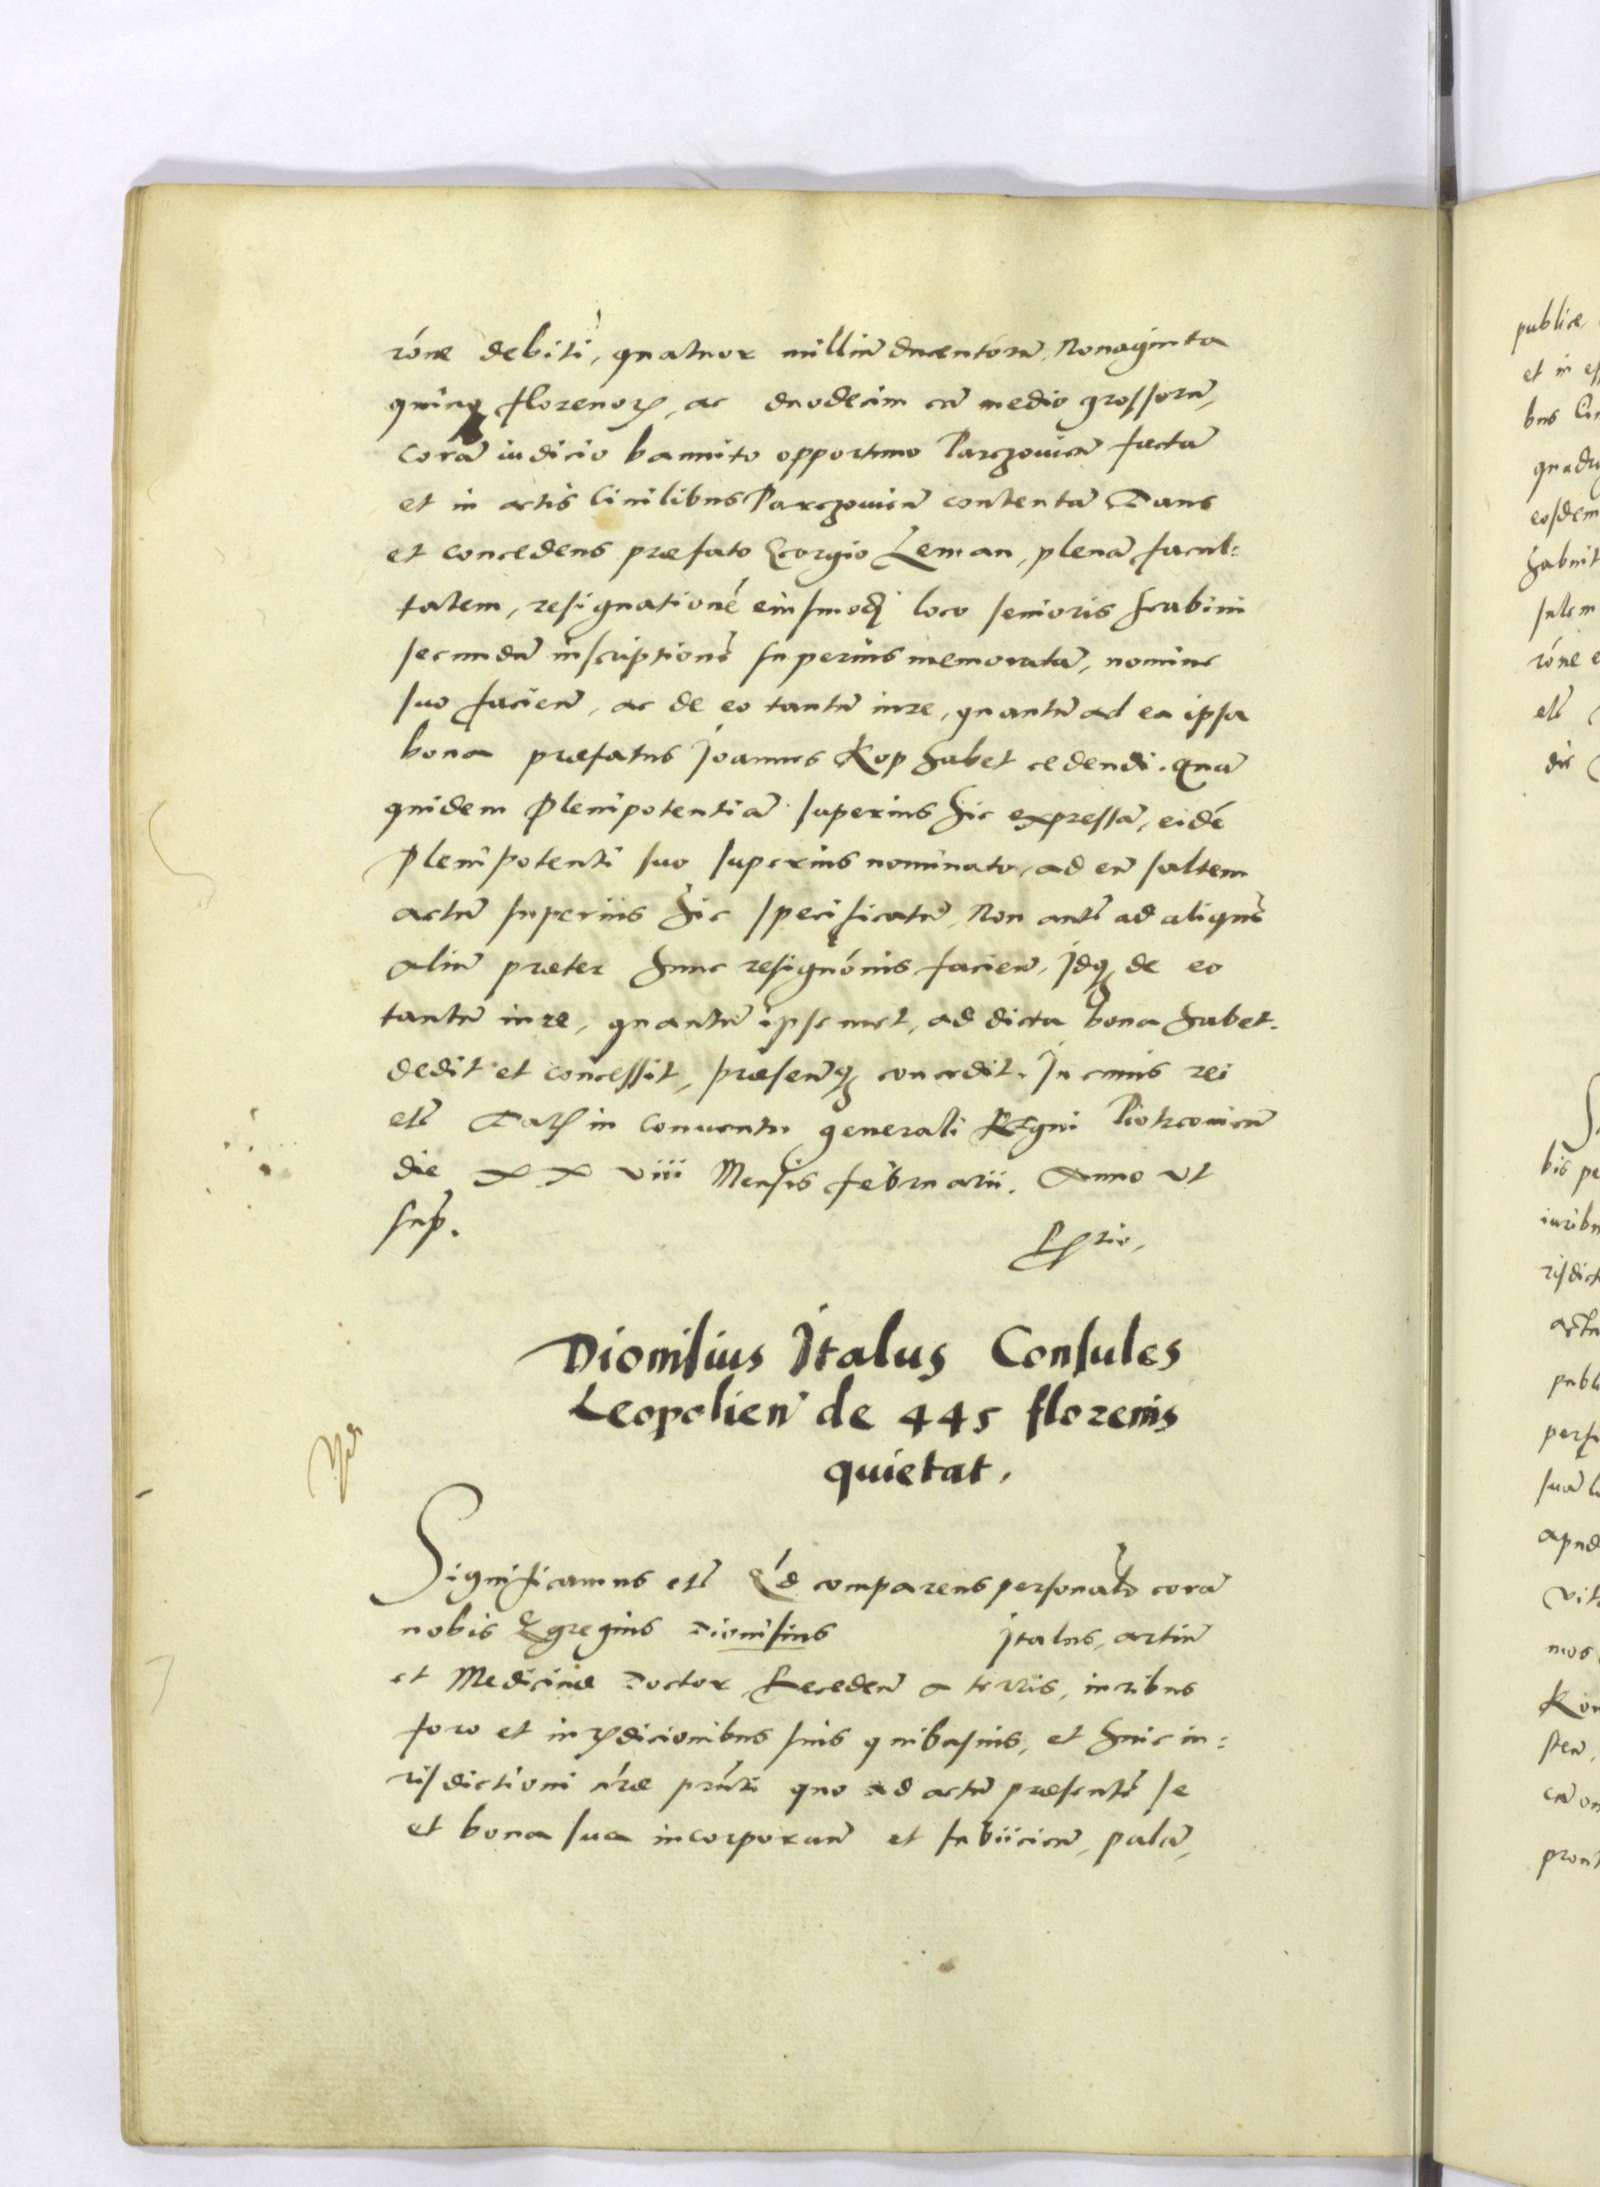 róne debiti, quatuor milliũ ducentórũ, Nonaginta
quinqꝫ florenoꝝ, ac duodecim cũ medio grossorũ,
corã iudicio bannito opportuno Parczouieñ factã
et in actis Ciuilibus Parczouieñ contentã Dans
et concedens præfato Georgio Leman, plenã facul:
tatem, resignationẽ eiusmodi loco senioris scabini
secundũ inscriptionẽ superius memoratã, nomine
suo facieñ, ac de eo tantũ iure, quantũ ad ea ipsa
bona præfatus Joannes Kop habet cedendi. Quã
quidem Plenipotentiã superius hic expressã, eidẽ
Plenipotenti suo superius nominato, ad eũ saltem
actũ superius hic specificatũ, Non aut̃ ad aliquẽ
aliũ præter hunc resignónis facieñ, Jdqꝫ de eo
tantũ iure, quantũ ipsemet, ad dicta bona habet.
dedit et concessit, præsentiqꝫ concedit. Jn cuius rei
etc̃ Datꝝ in Conuentu generali Regni Piotrcouieñ
die XX viii Mensis februarii. Anno vt
sup.
Dionisius Jtalus Consules
Leopolieñ de 445 florenis
quietat.
Significamus etc̃ Q́d comparens personalr̃ corã
nobis Egregius Dionisius Jtalus, artiũ
et Medicinæ Doctor Recedeñ a terris, iuribus
foro et iurꝝdicionibus suis quibusuis, et huic iu:
risdictioni nr̃æ prñti quo ad actũ præsentẽ se
et bona sua incorporañ et subiicieñ, palã,
publice
et in
bus
eosdem
habuit
róne
etc̃
die
bis
actu
publ
suã
apud
mos
cũ